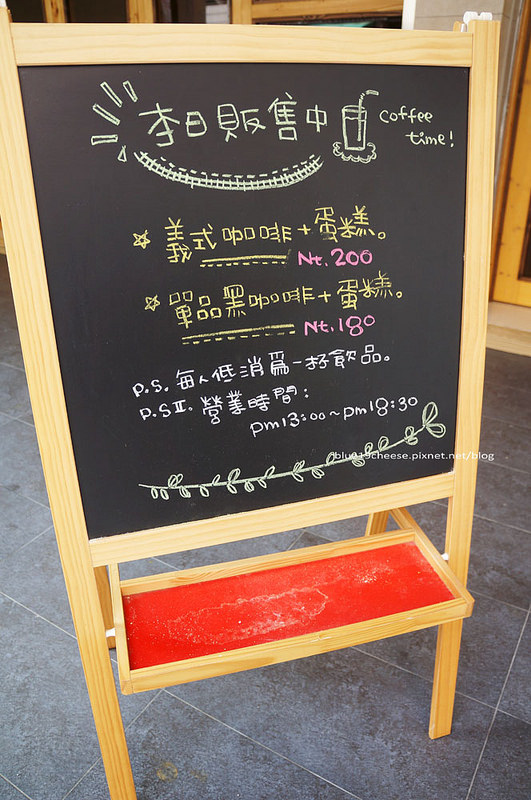 李日販售中 coffee time!
☆ 義式咖啡+蛋糕。
Nt.200
☆ 單品黑咖啡+蛋糕。
Nt.180
p.s. 每人低消為一杯飲品。
p.s II. 營業時間:
pm13:00~pm18:30
blu019cheese.pixnet.net/blog